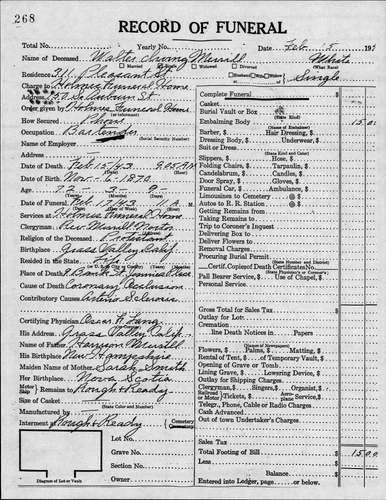 268
RECORD OF FUNERAL
Total No. Yearly No. Date Feb. 193
Name of Deceased Walter Irving Merrill White
Married Widowed Divorced (What Race)
Residence Pleasant St. Single
Charge to Holmes Funeral Home Complete Funeral
Address Casket
Order given by Holmes Funeral Home Burial Vault or Box
(State Kind)
How Secured Phone Embalming Body 15.00
(Name of Embalmer)
Occupation Bartender Barber, $ Hair Dressing, $
(Social Security Number) Dressing Body, $ Underwear, $
Name of Employer Suit or Dress
(State Kind and Color)
Address Slippers, $ Hose, $
Date of Death Feb 15/43 9:05 P.M. Folding Chairs, $ Tarpaulin, $
Date of Birth Nov - 6 - 1870 Candelabrum, $ Candles, $
Door Spray, $ Gloves, $
Age 72 - 3 - 9 - Funeral Car, $ Ambulance, $
Date of Funeral Feb 17/43 Limousines to Cemetery @ $
Services at Holmes Funeral Home Autos to R. R. Station @ $
Getting Remains from
Clergyman Rev. Merrill Norton Taking Remains to
Trip to Coroner's Inquest
Religion of the Deceased Protestant Delivering Box to
Birthplace Grass Valley Calif. Deliver Flowers to
Removal Charges
Resided in the State Life Procuring Burial Permit
(or U. S. or City or County) (State Number and District)
Place of Death Certif. Copies of Death Certificates No.
Cause of Death Coronary Occlusion Pall Bearer Service, $ Use of Chapel, $
Contributory Causes Arterio Sclerosis Personal Service
Gross Total for Sales Tax
Certifying Physician Oscar F. Lang Outlay for Lot:
His Address Grass Valley Calif. Cremation
line Death Notices in Papers
Name of Father Harrison Merrill (Names of Newspapers)
His Birthplace New Hampshire Flowers, $ Palms, $ Matting, $
Rental of Tent, $ of Temporary Vault, $
Maiden Name of Mother Sarah Smith Opening of Grave or Tomb
Lining Grave, $ Lowering Device, $
Her Birthplace Nova Scotia Outlay for Shipping Charges
Clergyman, $ Singers, $ Organist, $
Remains to Rough & Ready Tickets, $ Aeroplane Service, $
Size of Casket Telegr., Phone, Cable or Radio Charges
(State Color and Number) Cash Advanced
Manufactured by Out of town Undertaker's Charges
Interment at Rough & Ready Cemetery
Lot No. Sales Tax
Grave No. Total Footing of Bill 15.00
Less
Section No. Balance
Owner Entered into Ledger, page or below.
Diagram of Lot or Vault